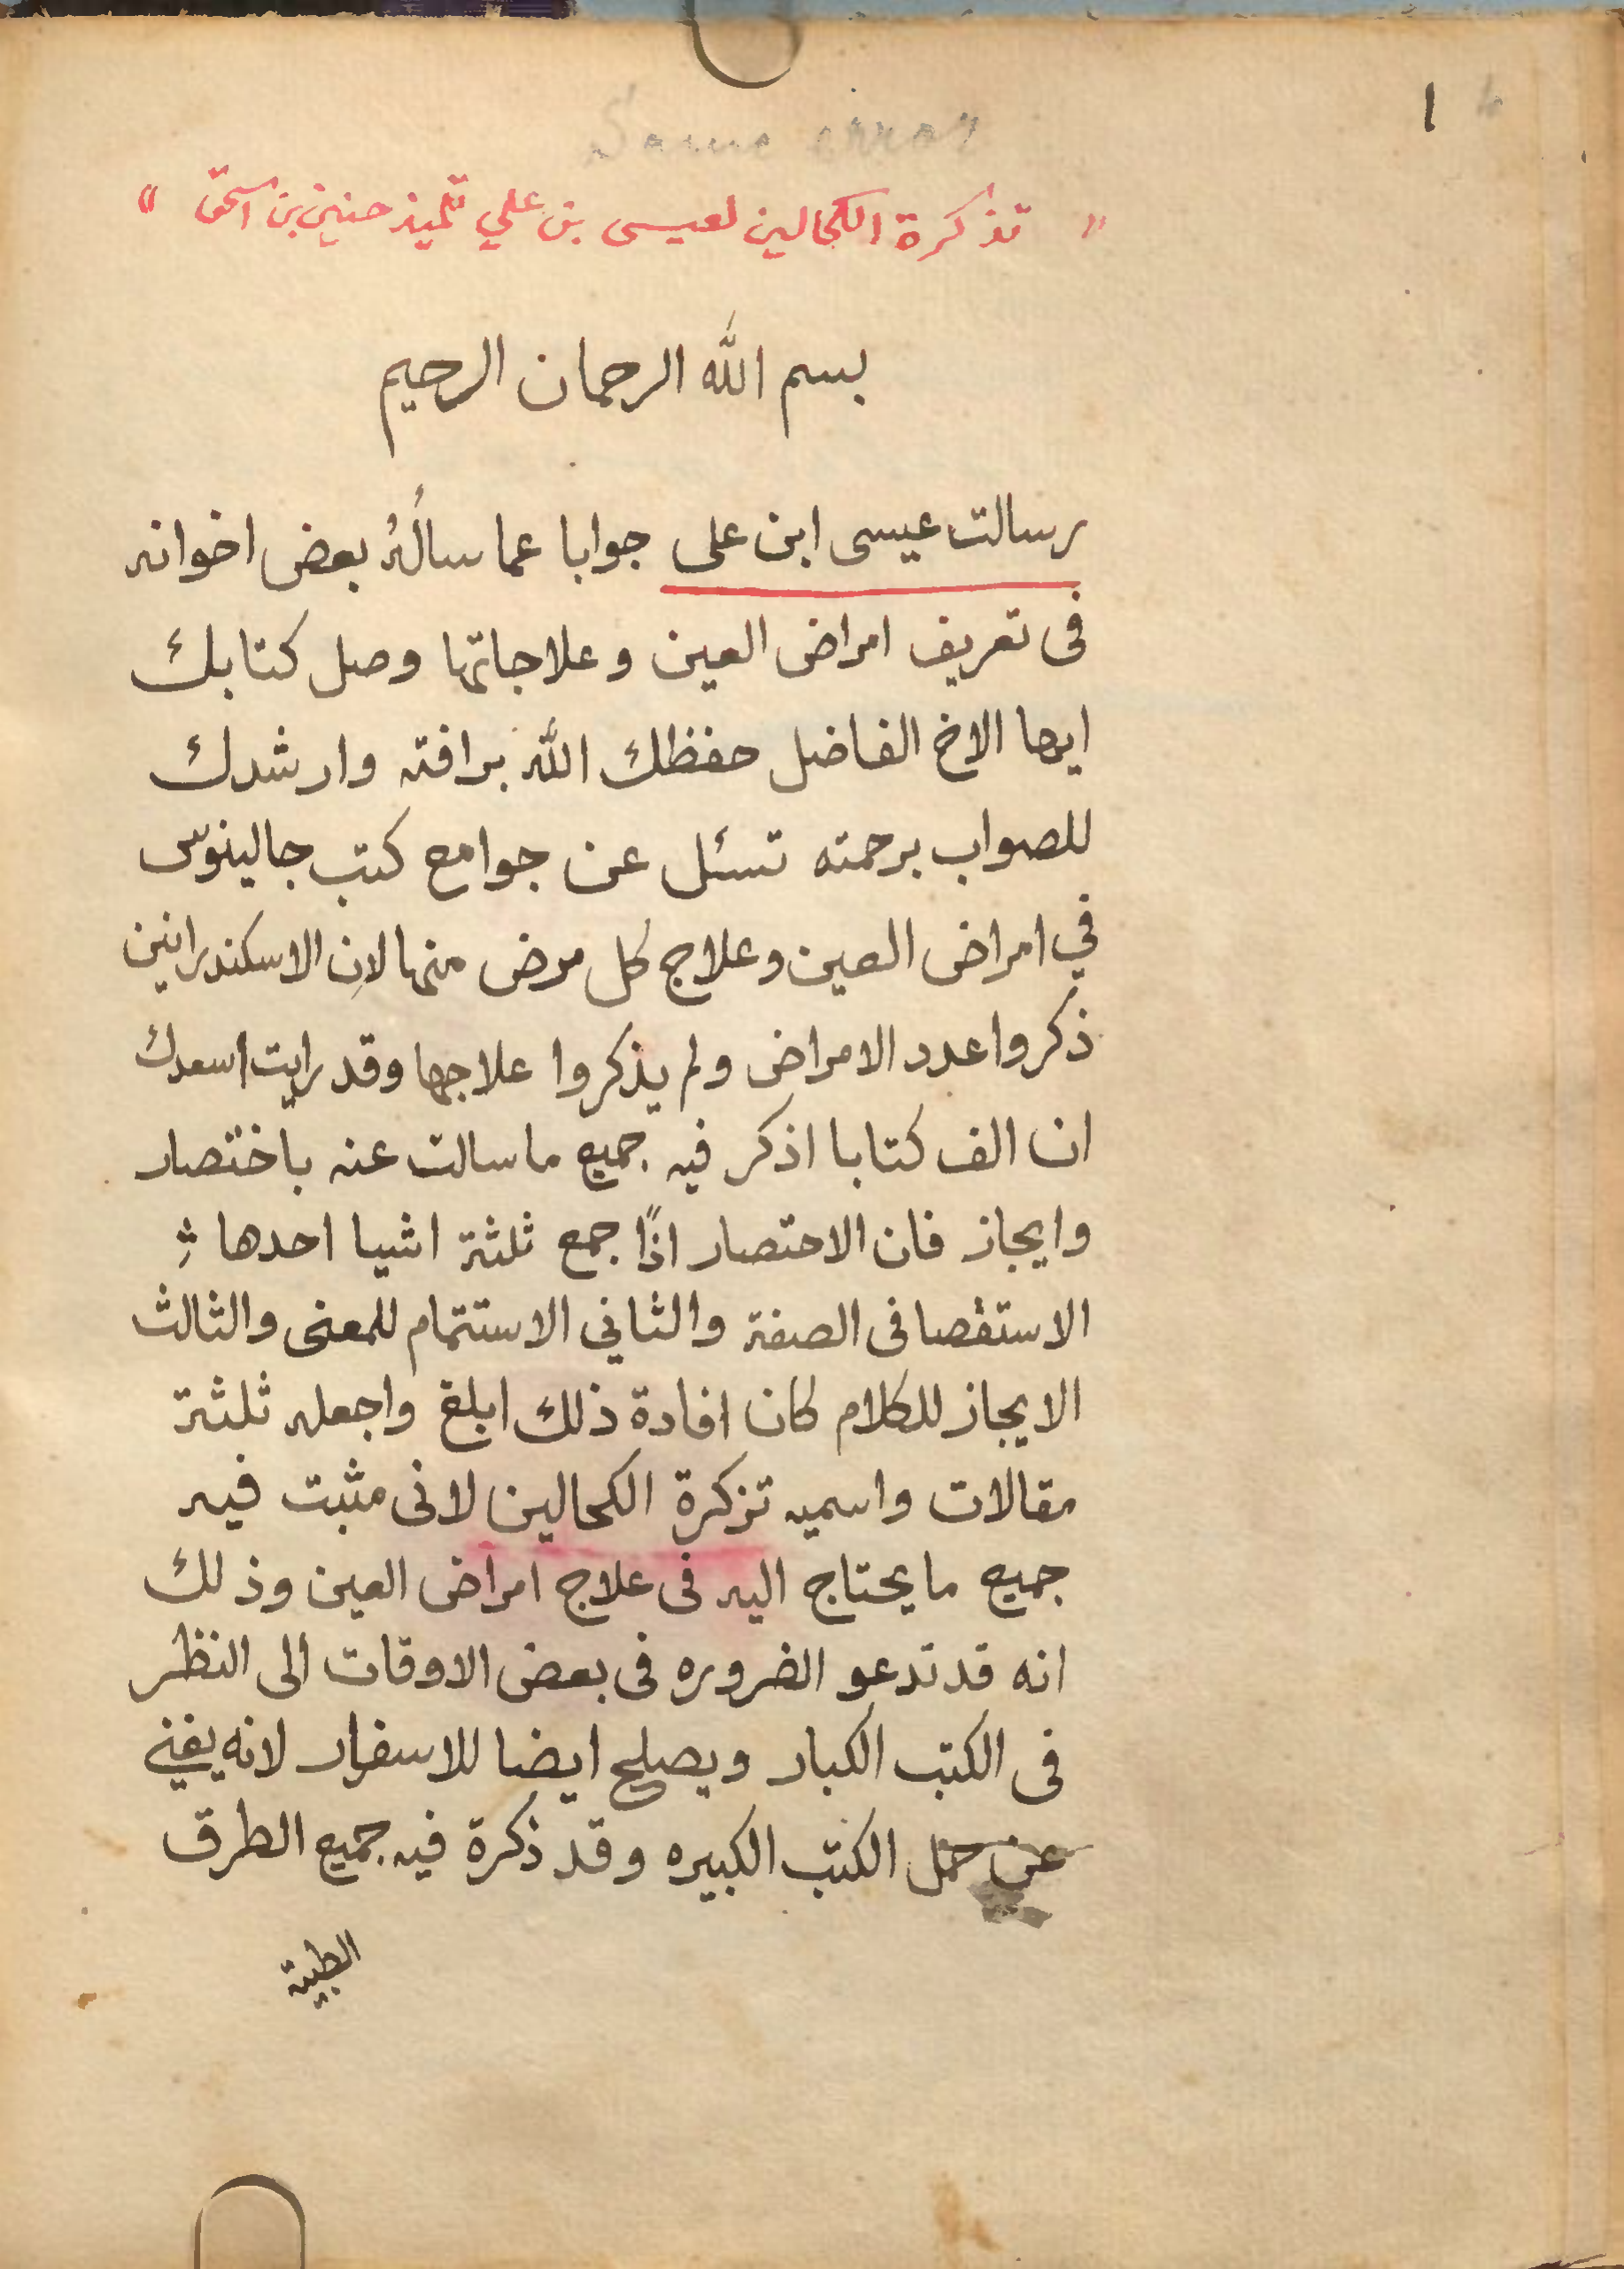 ١
Same error
" تذكرة الكحالين لعيسى بن علي تلميذ حنين بن اسحق "
بسم الله الرحمان الرحيم
رسالت عيسى ابن على جوابا عما سالُهُ بعض اخوانه
فى تعريف امراض العين وعلاجاتها وصل كتابك
ايها الاخ الفاضل حفظك الله برافته وارشدك
للصواب برحمته تسئل عن جوامع كتب جالينوس
في امراض العين وعلاج كل مرض منها لان الاسكندرانين
ذكروا عدد الامراض ولم يذكروا علاجها وقد رايت اسعدك
ان الف كتابا اذكر فيه جميع ما سالت عنه باختصار
وايجاز فان الاحتصار اذًا جمع ثلثة اشيا احدها
الاستقصا فى الصفة والثاني الاستتمام للمعنى والثالث
الايجاز للكلام كان افادة ذلك ابلغ واجعله ثلثة
مقالات واسميه تزكرة الكحالين لانى مثبت فيه
جميع ما يحتاج اليه فى علاج امراض العين وذلك
انه قد تدعو الضروره فى بعض الاوقات الى النظر
فى الكتب الكبار ويصلح ايضا للاسفار لانه يغني
عن حمل الكتب الكبيره وقد ذكرة فيه جميع الطرق
الطبية